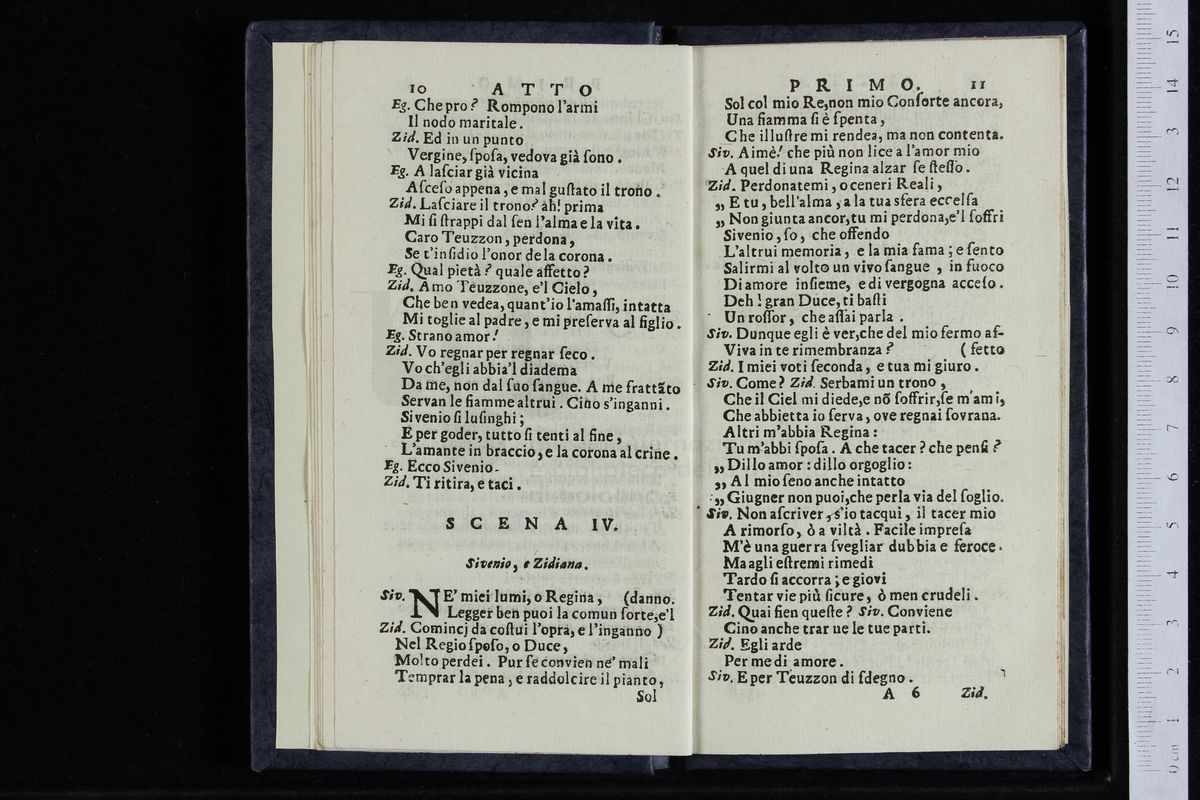 10 ATTO
Eg. Che pro? Rompono l'armi
Il nodo maritale.
Zid. Ed in un punto
Vergine, ſpoſa, vedova già ſono.
Eg. A laſciar già vicina
Aſceſo appena, e mal guſtato il trono.
Zid. Laſciare il trono? ah! prima
Mi ſi ſtrappi dal ſen l'alma e la vita.
Caro Teuzzon, perdona,
Se t'inſidio l'onor de la corona.
Eg. Qual pietà? quale affetto?
Zid. Amo Teuzzone, e'l Cielo,
Che ben vedea, quant'io l'amaſſi, intatta
Mi toglie al padre, e mi preſerva al figlio.
Eg. Strano amor!
Zid. Vo regnar per regnar ſeco.
Vo ch'egli abbia'l diadema
Da me, non dal ſuo ſangue. A me frattãto
Servan le fiamme altrui. Cino s'inganni.
Sivenio ſi luſinghi;
E per goder, tutto ſi tenti al fine,
L'amante in braccio, e la corona al crine.
Eg. Ecco Sivenio.
Zid. Ti ritira, e taci.
SCENA IV.
Sivenio, e Zidiana.
Siv. NE' miei lumi, o Regina, (danno.
Legger ben puoi la comun ſorte, e'l
Zid. Comincj da coſtui l'opra, e l'inganno )
Nel Regio ſpoſo, o Duce,
Molto perdei. Pur ſe convien ne' mali
Temprar la pena, e raddolcire il pianto,
Sol
PRIMO. 11
Sol col mio Re, non mio Conſorte ancora,
Una fiamma ſi è ſpenta,
Che illuſtre mi rendea, ma non contenta.
Siv. Aimè! che più non lice a l'amor mio
A quel di una Regina alzar ſe ſteſſo.
Zid. Perdonatemi, o ceneri Reali,
„ E tu, bell'alma, a la tua sfera eccelſa
„ Non giunta ancor, tu mi perdona, e'l ſoffri
Sivenio, ſo, che offendo
L'altrui memoria, e la mia fama; e ſento
Salirmi al volto un vivo ſangue, in fuoco
Di amore inſieme, e di vergogna acceſo.
Deh! gran Duce, ti baſti
Un roſſor, che aſſai parla.
Siv. Dunque egli è ver, che del mio fermo af-
Viva in te rimembranza? (fetto
Zid. I miei voti ſeconda, e tua mi giuro.
Siv. Come? Zid. Serbami un trono,
Che il Ciel mi diede, e nõ ſoffrir, ſe m'ami,
Che abbietta io ſerva, ove regnai ſovrana.
Altri m'abbia Regina:
Tu m'abbi ſpoſa. A che tacer? che penſi?
„ Dillo amor: dillo orgoglio:
„ Al mio ſeno anche intatto
„ Giugner non puoi, che per la via del ſoglio.
Siv. Non aſcriver, s'io tacqui, il tacer mio
A rimorſo, ò a viltà. Facile impreſa
M'è una guerra ſvegliar dubbia e feroce.
Ma agli eſtremi rimedi
Tardo ſi accorra; e giovi
Tentar vie più ſicure, ò men crudeli.
Zid. Quai fien queſte? Siv. Conviene
Cino anche trar ne le tue parti.
Zid. Egli arde
Per me di amore.
Siv. E per Teuzzon di ſdegno.
A 6 Zid.
0 cm 1 2 3 4 5 6 7 8 9 10 11 12 13 14 15